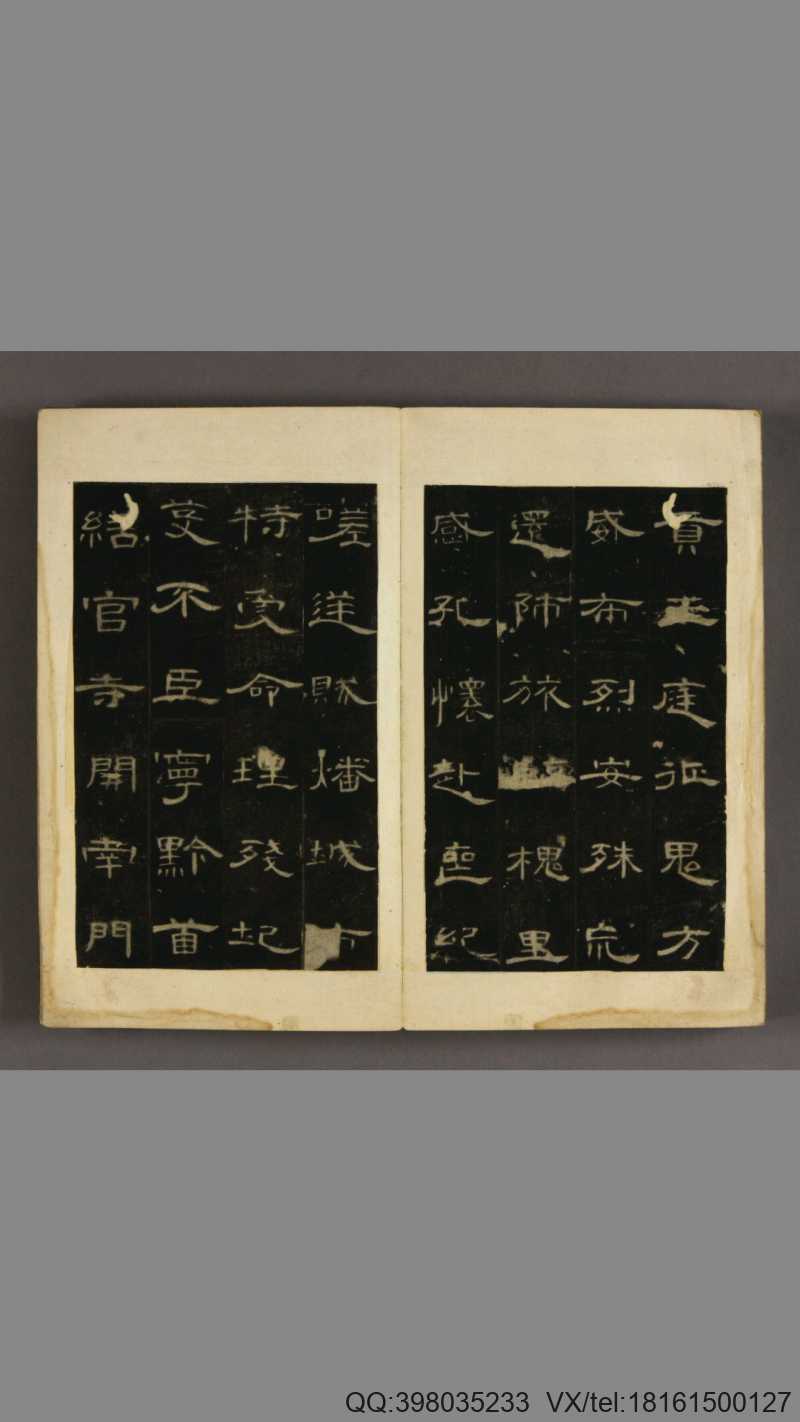 貢王庭征鬼方
威布烈安殊荒
還師旅臨槐里
感孔懷赴喪紀
嗟逆賊燔城市
特受命理殘圮
芟不臣寧黔首
繕官寺開南門
QQ:398035233 VX/tel:18161500127